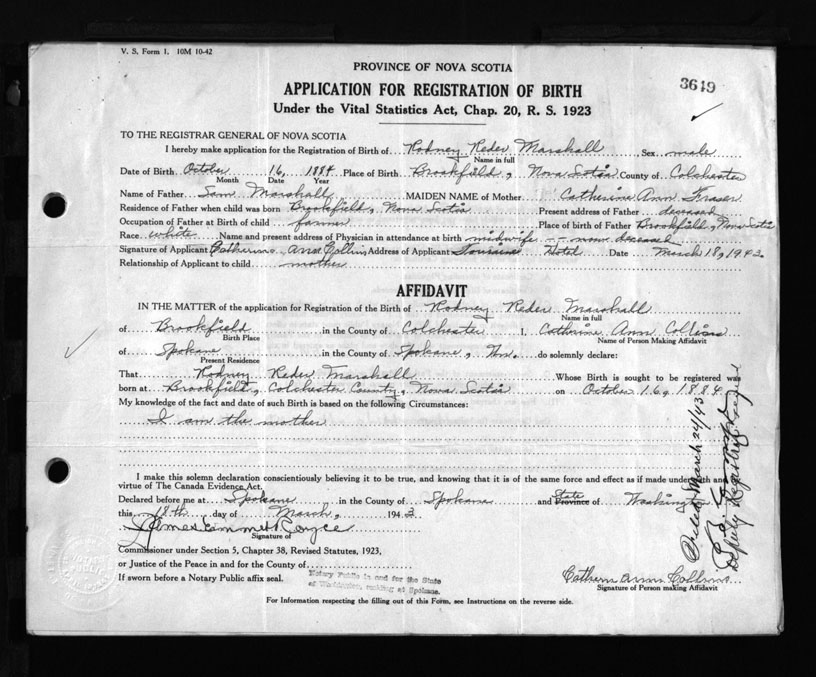 V. S. Form 1. 10M 10-42
PROVINCE OF NOVA SCOTIA
3649
APPLICATION FOR REGISTRATION OF BIRTH
Under the Vital Statistics Act, Chap. 20, R. S. 1923
TO THE REGISTRAR GENERAL OF NOVA SCOTIA
I hereby make application for the Registration of Birth of Rodney Reder Marshall Sex male
Name in full
Date of Birth October 16, 1884 Place of Birth Brookfield, Nova Scotia County of Colchester
Month Date Year
Name of Father Sam Marshall MAIDEN NAME of Mother Catherine Ann Fraser
Residence of Father when child was born Brookfield, Nova Scotia Present address of Father deceased
Occupation of Father at Birth of child farmer Place of birth of Father Brookfield, Nova Scotia
Race white Name and present address of Physician in attendance at birth midwife -- now deceased
Signature of Applicant Catherine Ann Collins Address of Applicant Hotel Date March 18, 1943.
Relationship of Applicant to child mother
AFFIDAVIT
IN THE MATTER of the application for Registration of the Birth of Rodney Reder Marshall
Name in full
of Brookfield in the County of Colchester I, Cathrine Ann Collins
Birth Place Name of Person Making Affidavit
of Spokane in the County of Spokane, Wn. do solemnly declare:
Present Residence
That Rodney Reder Marshall Whose Birth is sought to be registered was
born at Brookfield, Colchester County, Nova Scotia on October 16, 1884
My knowledge of the fact and date of such Birth is based on the following Circumstances:
I am the mother
I make this solemn declaration conscientiously believing it to be true, and knowing that it is of the same force and effect as if made under oath and
virtue of The Canada Evidence Act.
Declared before me at Spokane in the County of Spokane and State Province of Washington
this 18th day of March, 1943
James Emmet Royce
Signature of
Commissioner under Section 5, Chapter 38, Revised Statutes, 1923,
or Justice of the Peace in and for the County of
If sworn before a Notary Public affix seal.
Notary Public in and for the State
of Washington, residing at Spokane.
Cathern Ann Collins
Signature of Person making Affidavit
For Information respecting the filling out of this Form, see Instructions on the reverse side.
Filed March 24/43
Deputy Registrar General